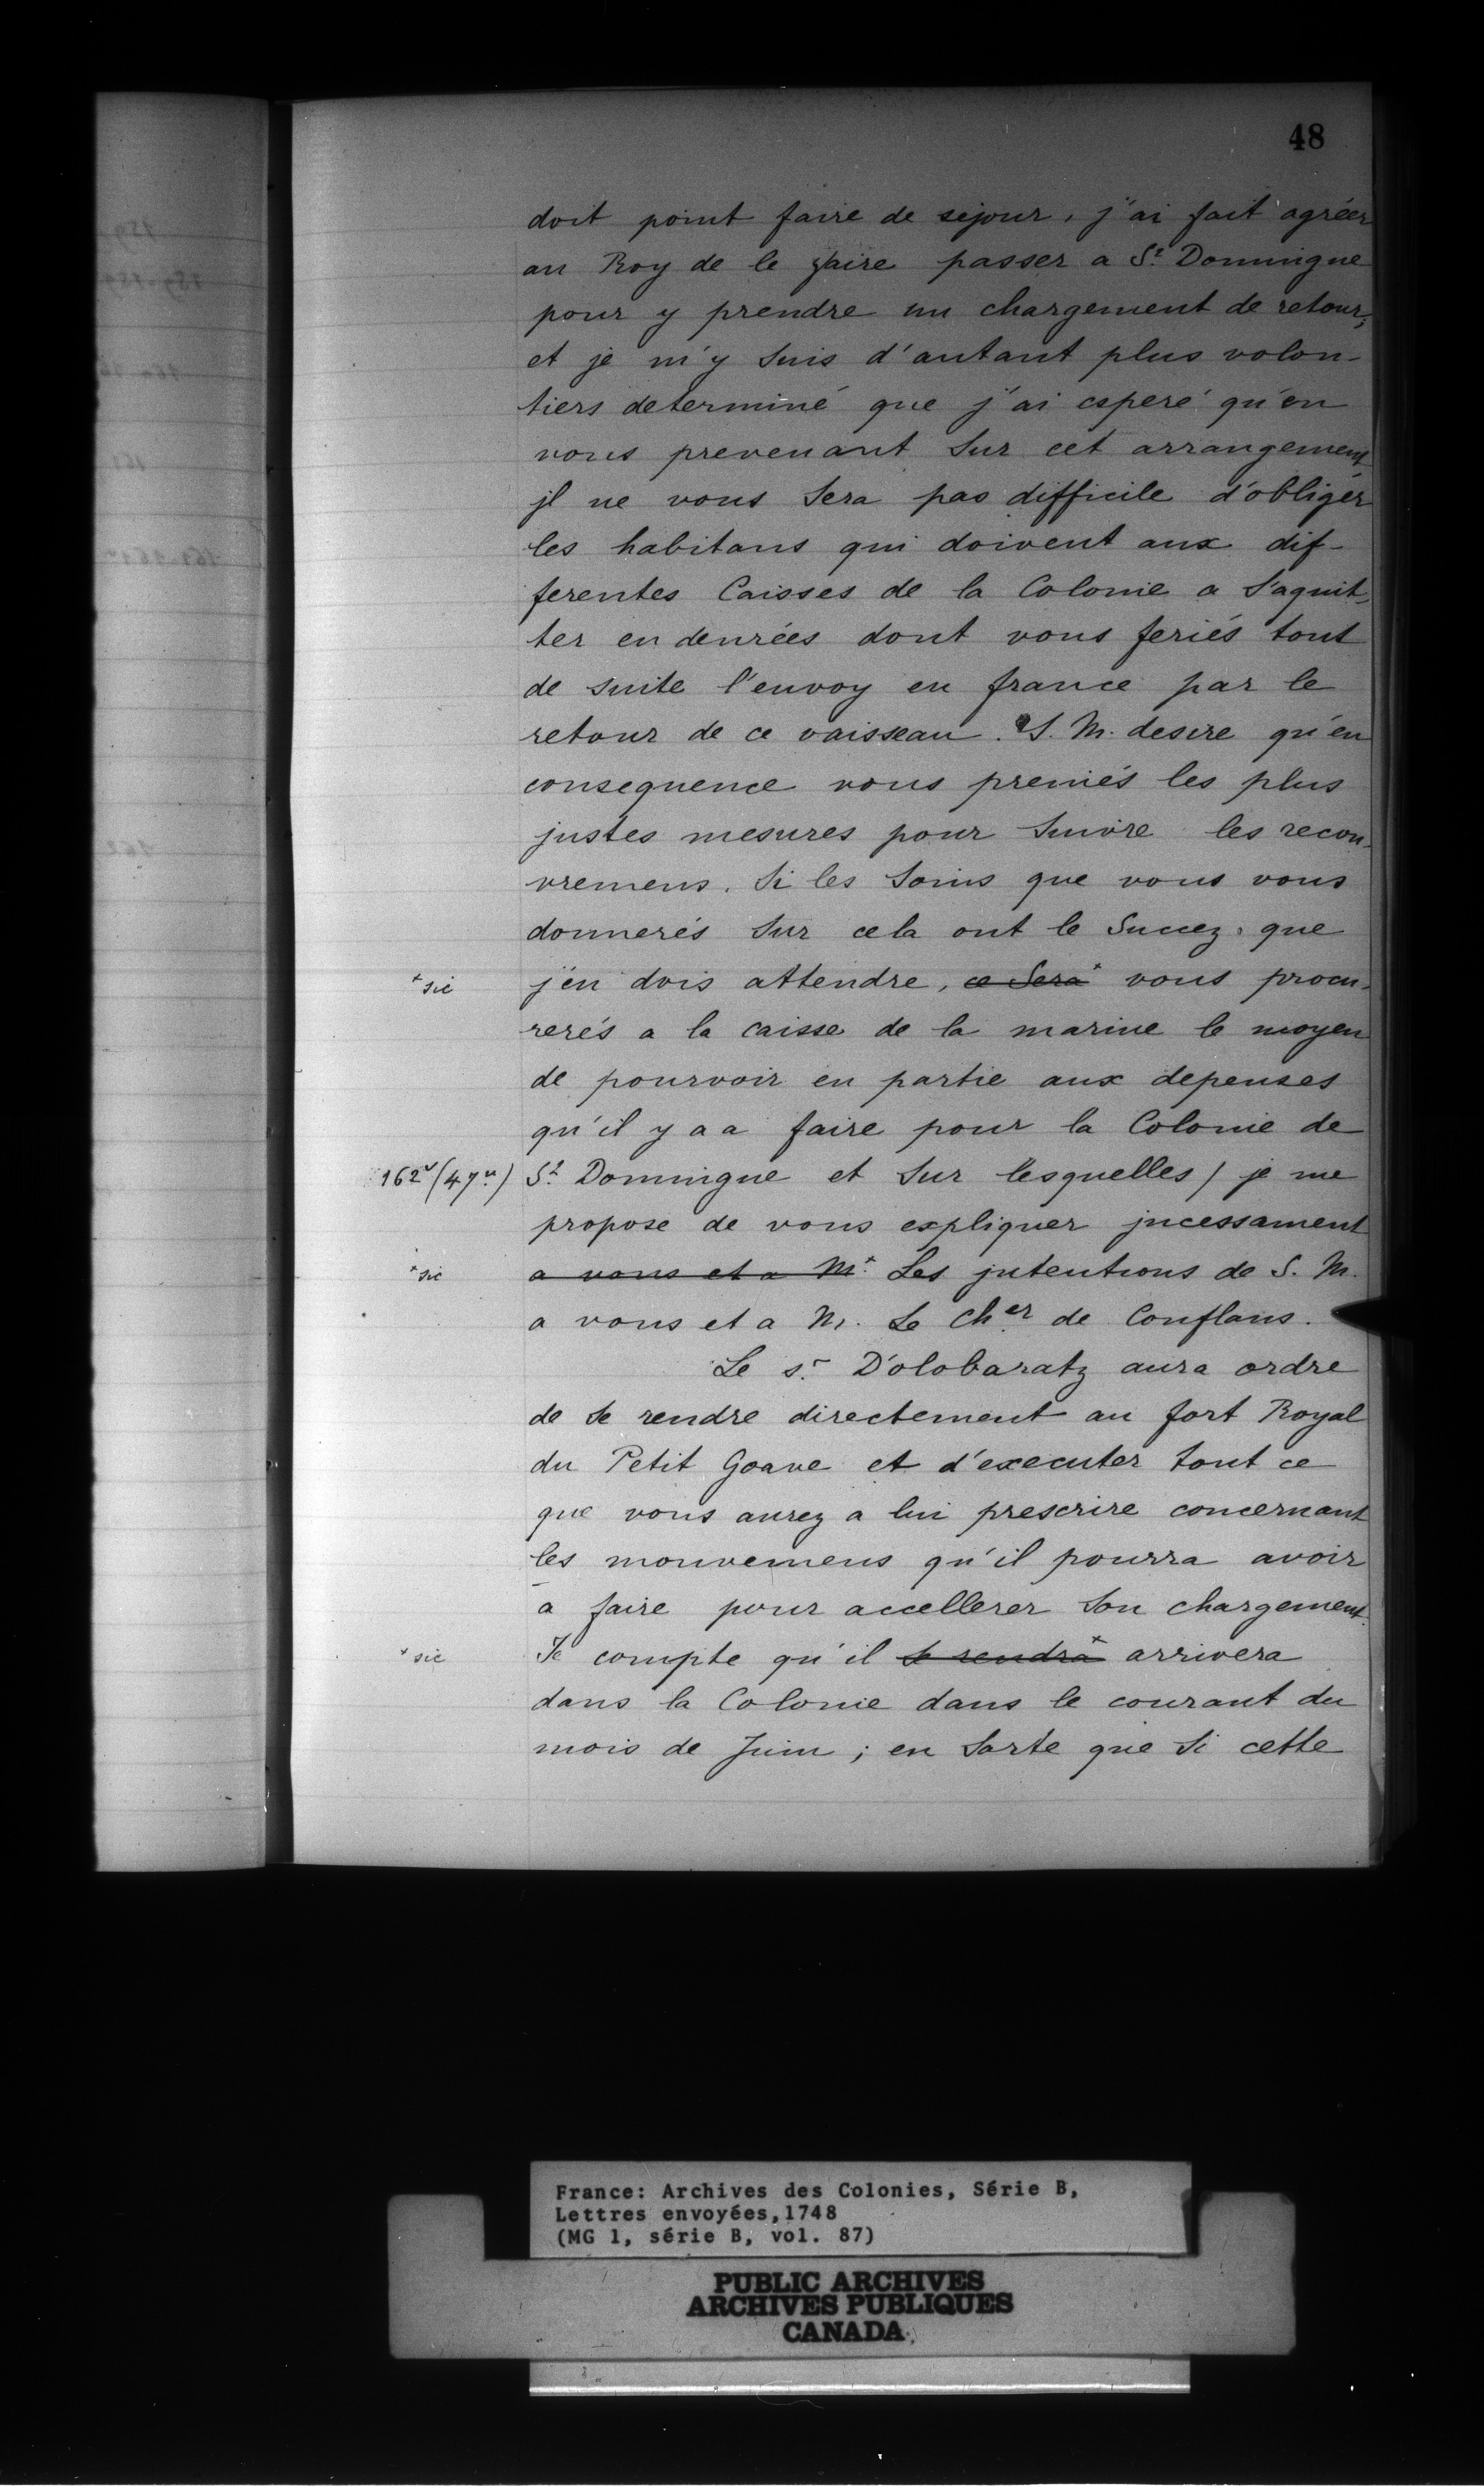 48
doit point faire de sejour, j'ai fait agréer
au Roy de le faire passer a St Domingue
pour y prendre un chargement de retour;
et je m'y suis d'autant plus volon-
tiers determiné que j'ai esperé qu'en
vous prevenant sur cet arrangement,
jl ne vous sera pas difficile d'obliger
les habitans qui doivent aux dif-
ferentes Caisses de la Colonie a s'aquit-
ter en denrées dont vous feriés tout
de suite l'envoy en france par le
retour de ce vaisseau. S. M. desire qu'en
consequence vous preniés les plus
justes mesures pour suivre les recou-
vremens. Si les soins que vous vous
donnerés sur cela ont le succez que
+ sic j'en dois attendre, ce sera + vous procu-
rerés a la caisse de la marine le moyen
de pourvoir en partie aux depenses
qu'il y a a faire pour la Colonie de
162v (47v) St Domingue et sur lesquelles / je me
propose de vous expliquer jncessament
+ sic a vous et a Mr + Les jntentions de S. M.
a vous et a M. Le Cher de Conflans.
Le sr D'olobaratz aura ordre
de se rendre directement au fort Royal
du Petit Goave et d'executer tout ce
que vous aurez a lui prescrire concernant
les mouvemens qu'il pourra avoir
a faire pour accellerer son chargement.
+ sic Je compte qu'il se rendra + arrivera
dans la Colonie dans le courant du
mois de Juin ; en sorte que si cette
France: Archives des Colonies, Série B,
Lettres envoyées,1748
(MG 1, série B, vol. 87)
PUBLIC ARCHIVES
ARCHIVES PUBLIQUES
CANADA